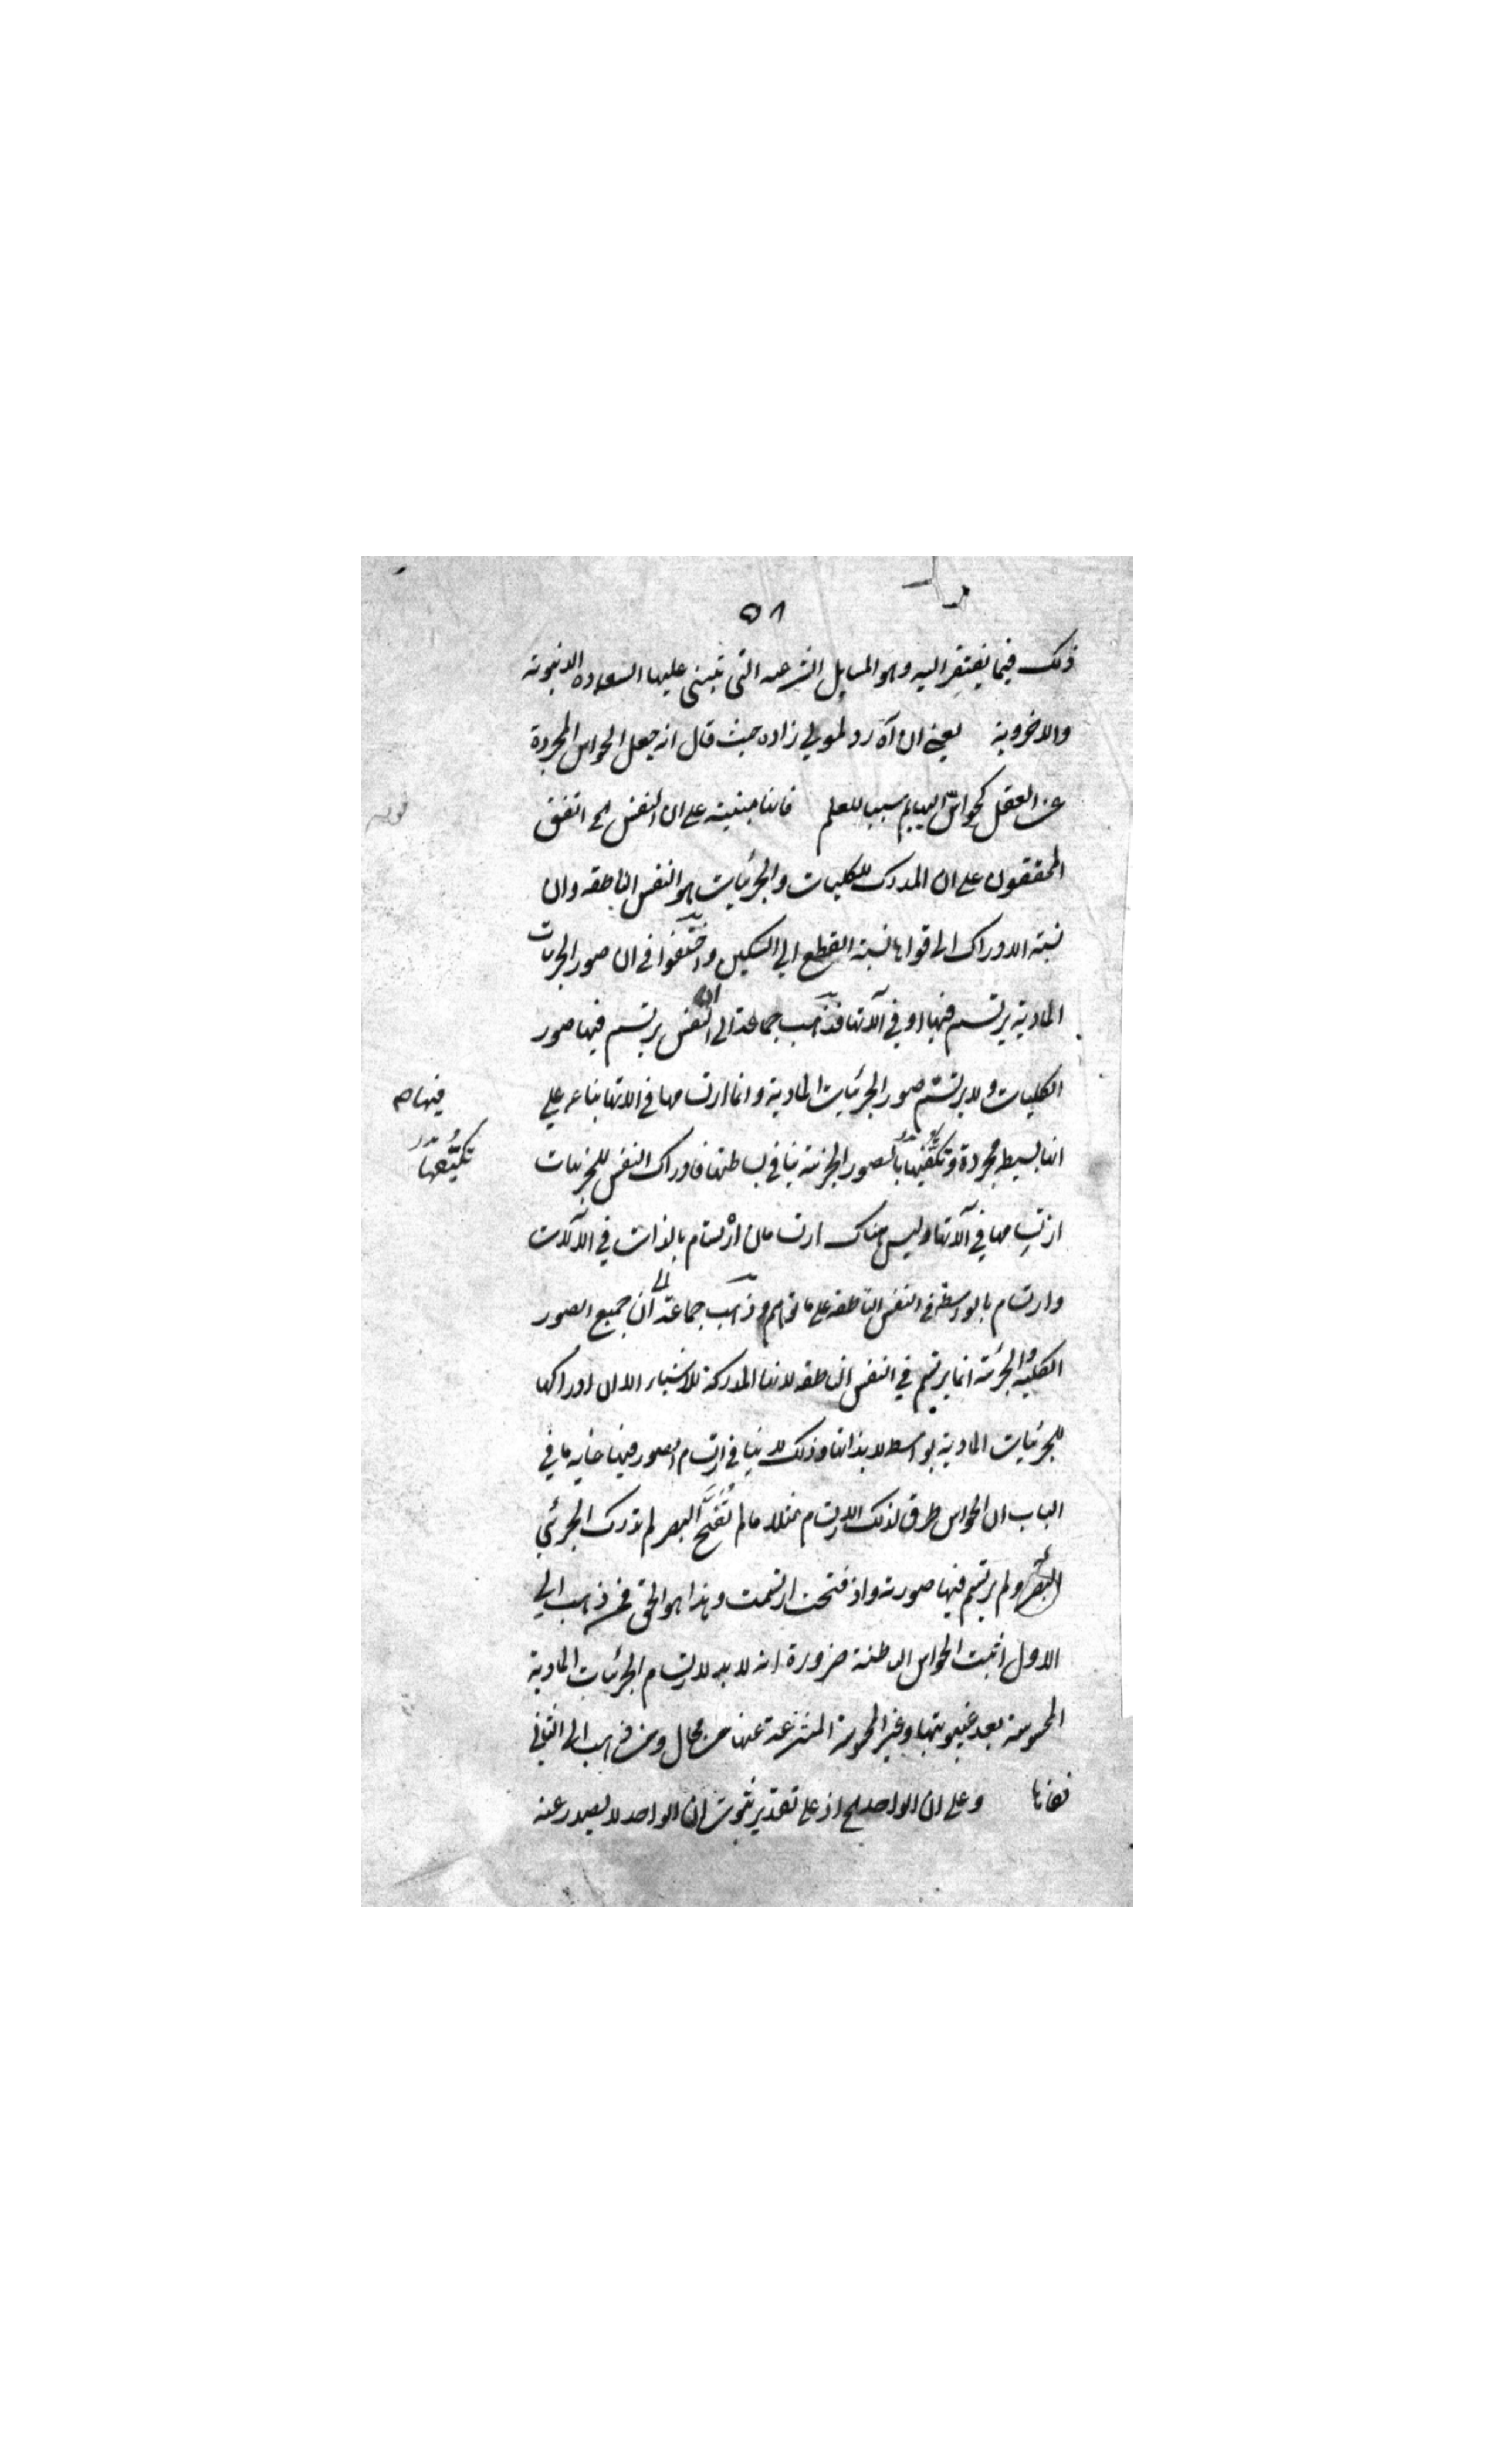 ٥٨
ذلك فيما يفتقر اليه وهو المسايل الشرعيه التى تبتنى عليها السعاده الدنيوية
والاخروية يعنى ان آه رد لمولى زاده حيث قال انه جعل الحواس المجردة
عن العقل كحواس البهايم سبب للعلم فانها مبنية على ان النفس الخ اتفق
المحققون على ان المدرك للكليات والجزئيات هو النفس الناطقه وان
نسبة الادراك الى قواها نسبة القطع الى السكين واختلفوا فى ان صور الجزئيات
المادية يرتسم فيها او فى آلاتها فذهب جماعة الى ان النفس يرتسم فيها صور
الكليات ولا يرتسم صور الجزئيات المادية وانما ارتسامها فى الاتها بناء على
فيها صح
انها بسيطة مجردة وتكيفها بالصور الجزئية ينافى بساطتها فادراك النفس للجزئيات
تكيفها
ارتسامها فى آلاتها وليس هناك ارتسامان ارتسام بالذات فى الآلات
وارتسام بالواسطة فى النفس الناطقه على ما توهم وذهب جماعة الى ان جميع الصور
الكلية والجزئية انما يرتسم فى النفس الناطقه لانها المدركة للاشياء الا ان ادراكها
للجزئيات المادية بواسطة لا بذاتها وذلك لا ينافى ارتسام الصور فيها غاية ما فى
الباب ان الحواس طرق لذلك الارتسام مثلا ما لم تفتح البصر لم تدرك الجزئى
المبصر ولم يرتسم فيها صورته واذ فتحت ارتسمت وهذا هو الحق فمن ذهب الى
الاول اثبت الحواس الباطنة ضرورة انه لا بد لارتسام الجزئيات المادية
المحسوسة بعد غيبوبتها وغير المحسوسة المنتزعة عنها من محال ومن ذهب الى الثانى
نفاها وعلى ان الواحد الخ اذ على تقدير ثبوت ان الواحد لا يصدر عنه